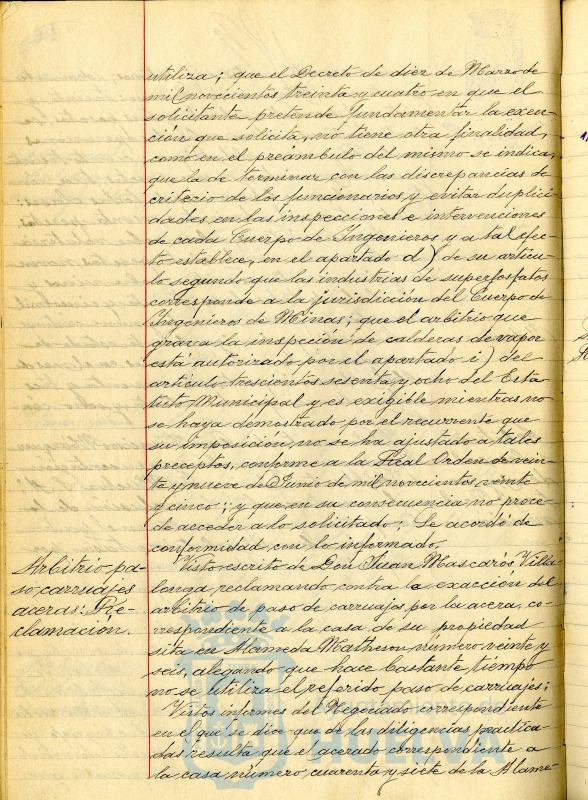 utiliza; que el Decreto de diez de Marzo de
mil novecientos treinta y cuatro en que el
solicitante pretende fundamentar la exen-
ción que solicita, no tiene otra finalidad,
como en el preambulo del mismo se indica,
que la de terminar con las discrepancias de
criterio de los funcionarios y evitar duplici-
dades en las inspecciones e intervenciones
de cada Cuerpo de Ingenieros y a tal efec-
to establece, en el apartado d) de su articu-
lo segundo que las industrias de superfosfatos
corresponde a la jurisdicion del Cuerpo de
Ingenieros de Minas; que el arbitrio que
grava la inspeción de calderas de vapor
está autorizado por el apartado i) del
articulo trescientos sesenta y ocho del Esta
tuto Municipal y es exigible mientras no
se haya demostrado por el recurrente que
su imposición no se ha ajustado a tales
preceptos, conforme a la Real Orden de vein-
te y nueve de Junio de mil novecientos veinte
y cinco; y que en su consecuencia no proce-
de acceder a lo solicitado; Se acordó de
conformidad con lo informado.
Arbitrio pa-
so carruajes
aceras: Re-
clamación.
Visto escrito de Don Juan Mascarós Villa-
longa reclamando contra la exacción del
arbitrio de paso de carruajes por la acera, co-
rrespondiente a la casa de su propiedad
sita en Alameda Matheson número veinte y
seis, alegando que hace bastante tiempo
no se utiliza el referido paso de carruajes;
Vistos informes del Negociado correspondiente
en el que se dice que de las diligencias practica-
das resulta que el acerado correspondiente a
la casa número cuarenta y siete de la Alame-